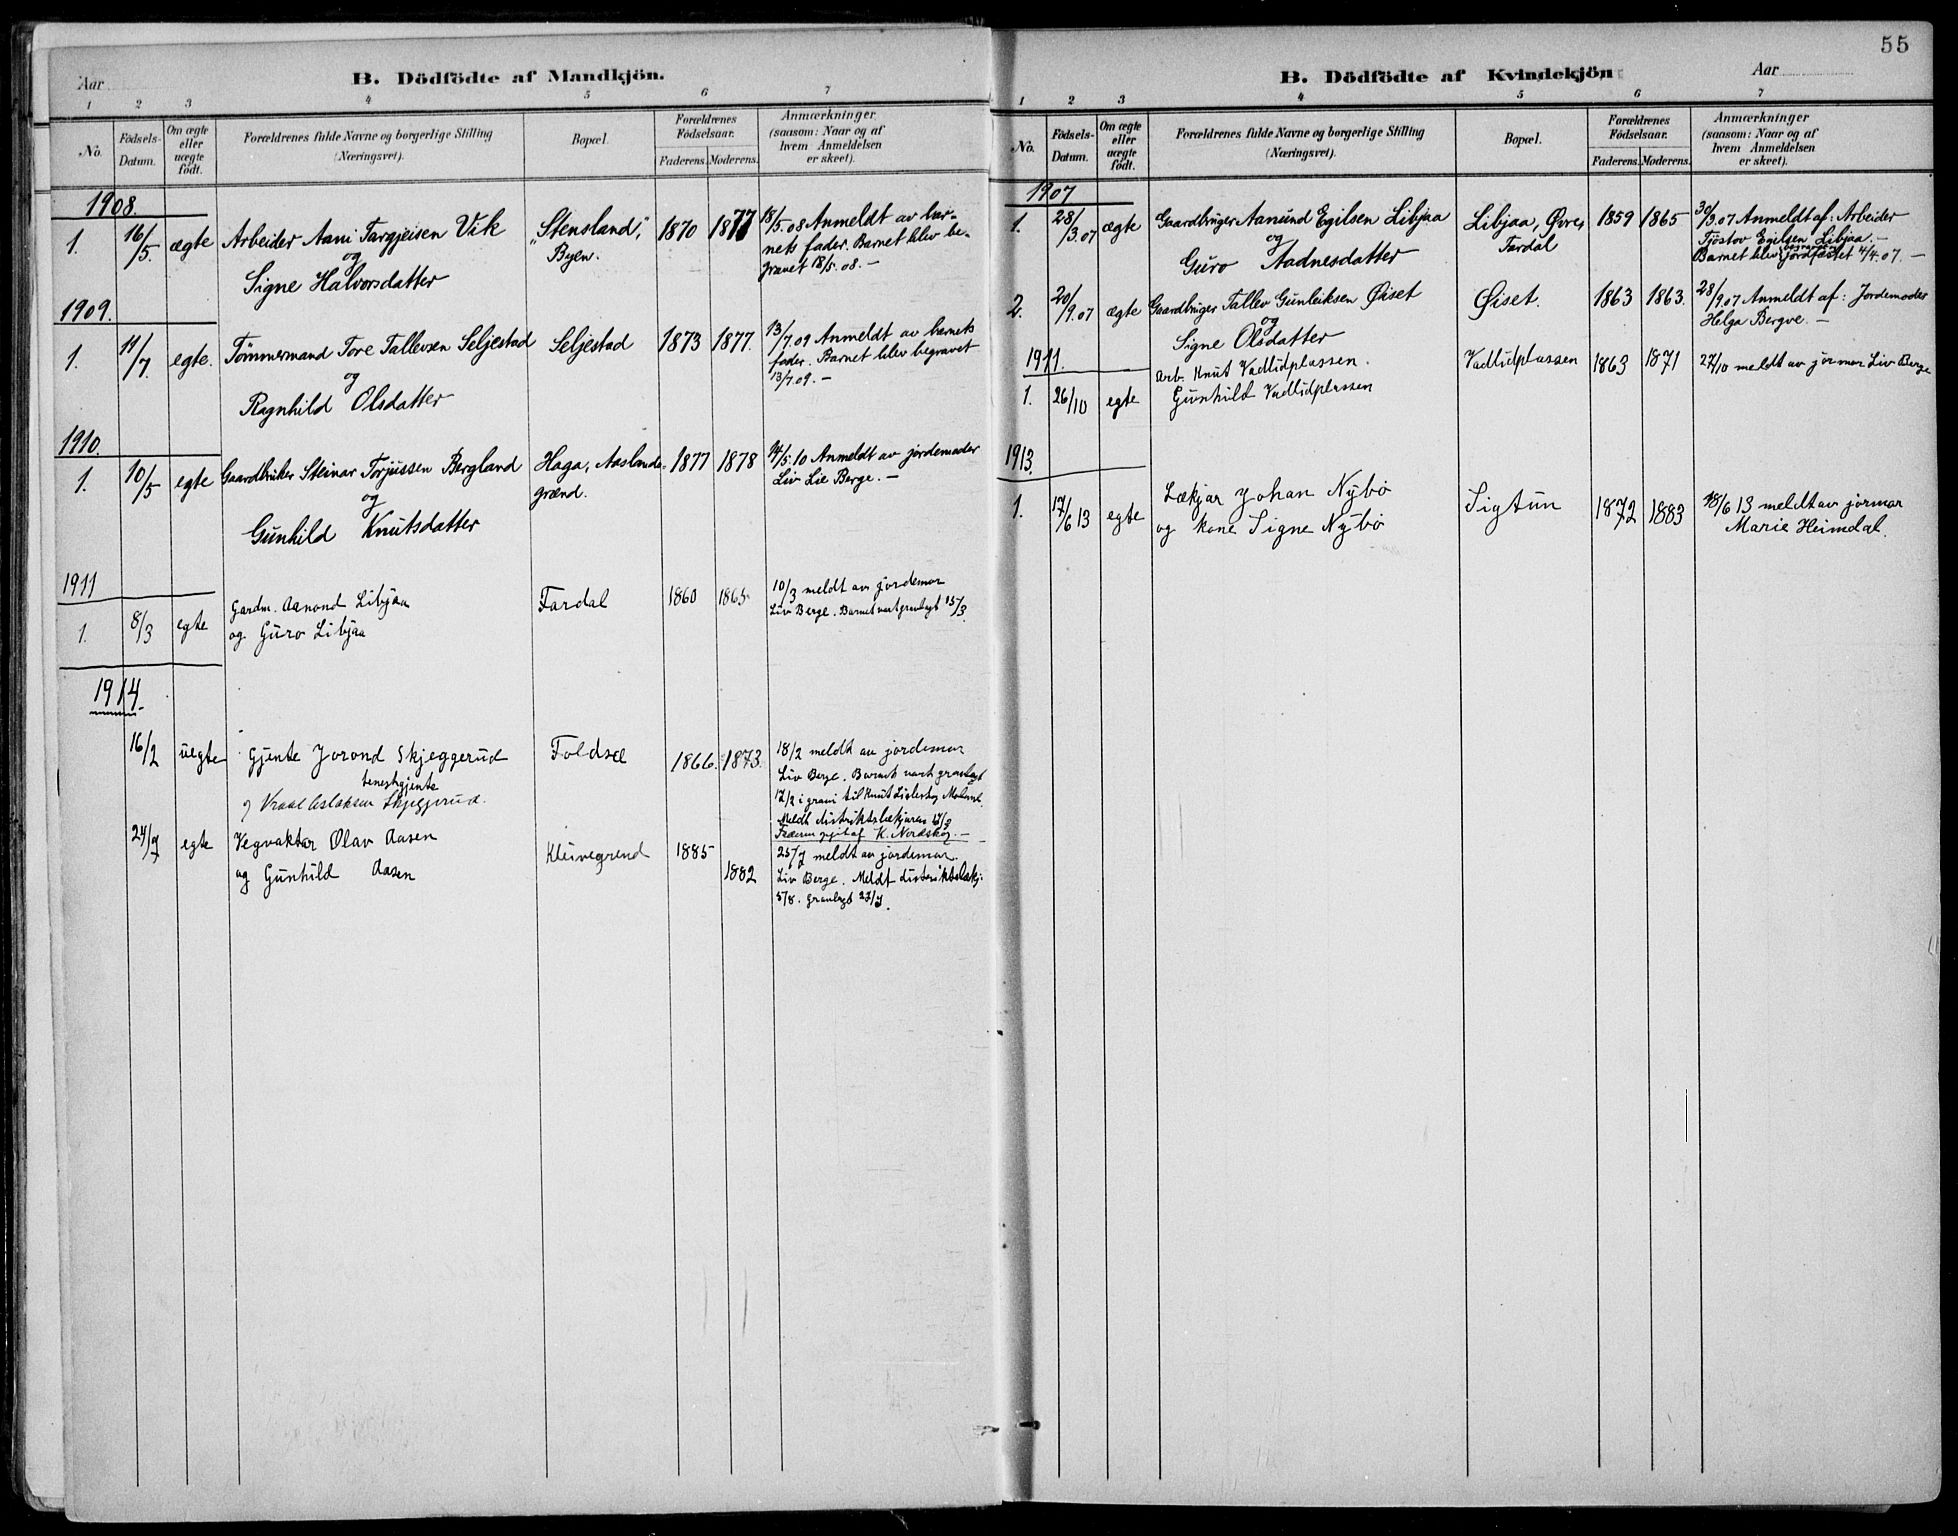 55
Aar
B. Dödfödte af Mandkjön.
1 2 3 4 5 6 7
No.
Födsels-
Datum.
Om ægte
eller
uægte
født.
Forældrenes fulde Navne og borgerlige Stilling
(Næringsvei).
Bopæl.
Forældrenes
Fødselsaar.
Faderens. Moderens.
Anmærkninger
(saasom: Naar og af
hvem Anmeldelsen
er skeet).
1908.
1. 16/5. ægte Arbeider Aani Targjeisen Vik
og
Signe Halvorsdatter
"Stensland",
Byen.
1870 1877
18/5.08 Anmeldt av bar-
nets fader. Barnet blev be-
gravet 18/5.08. —
1909.
1. 11/7. egte. Tömmermand Tore Tallevsen Seljestad
og
Ragnhild Olsdatter
Seljestad 1873 1877.
13/7.09 Anmeldt av barnets
fader. Barnet blev begravet
13/7.09. —
1910.
1. 10/5 egte Gaardbruker Steinar Torjussen Bergland
og
Gunhild Knutsdatter
Haga, Aaslands-
grænd.
1877 1878
14/5.10 Anmeldt av jordemoder
Liv Lie Berge. —
1911
1. 8/3 egte Gardm. Aanond Libjaa
og Guro Libjaa
Fardal 1860 1865
10/3 meldt av jordemor
Liv Berge. Barnet vart gravlagt 15/3.
1914.
16/2 uegte Gjente Jorond Skjeggerud
teneshgjente
og Vraal Aslaksen Skjeggerud.
Foldsæ 1866. 1873.
18/2 meldt av jordemor
Liv Berge. Barnet vart gravlagt
17/2 i grav til Knut
Meldt distriktslækjaren
K. Nordskog. —
24/7 egte Vegvaktar Olav Aasen
og Gunhild Aasen
Kleivegrend 1885
1882
25/7 meldt av jordemor
Liv Berge. Meldt distriktslækj.
5/8. Gravlagt 27/7.
B. Dödfödte af Kvindekjön
Aar
1 2 3 4 5 6 7
No.
Födsels-
Datum.
Om ægte
eller
uægte
født.
Forældrenes fulde Navne og borgerlige Stilling
(Næringsvei).
Bopæl.
Forældrenes
Fødselsaar.
Faderens. Moderens.
Anmærkninger
(saasom: Naar og af
hvem Anmeldelsen
er skeet).
1907
1. 28/3.07 ægte Gaardbruger Aanund Egilsen Libjaa
og
Guro Aadnesdatter
Libjaa, Øvre
Fardal
1859 1865
30/3.07 Anmeldt af: Arbeider
Tjöstov Egilsen Libjaa. —
begravet
Barnet blev jordfæstet 4/4.07. —
2. 20/9.07 ægte Gaardbruger Tallev Gunleiksen Øiset
og
Signe Olsdatter
Øiset. 1863 1863.
28/9.07 Anmeldt af: Jordemoder
Helga Bergve. —
1911.
1. 26/10 egte Arb. Knut Vadlidplassen.
Gunhild Vadlidplassen
Vadlidplassen 1863 1871
27/10 meldt av jormor Liv Berge
1913.
1. 17/6 13 egte Lækjar Johan Nybø
og kone Signe Nybø
Sigtun 1872 1883
18/6 13 meldt av jormor
Marie Heimdal.